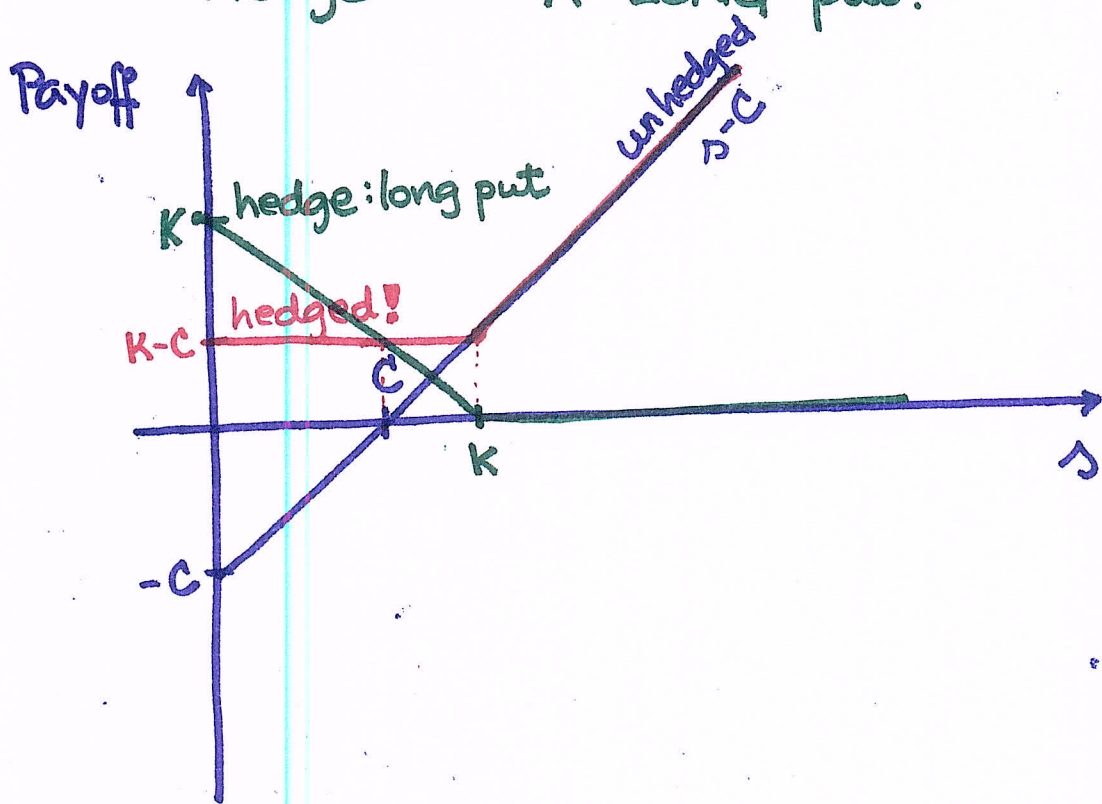 put.
Payoff
unhedged
s-C
K hedge: long put
hedged!
K-C
C
K
s
-C